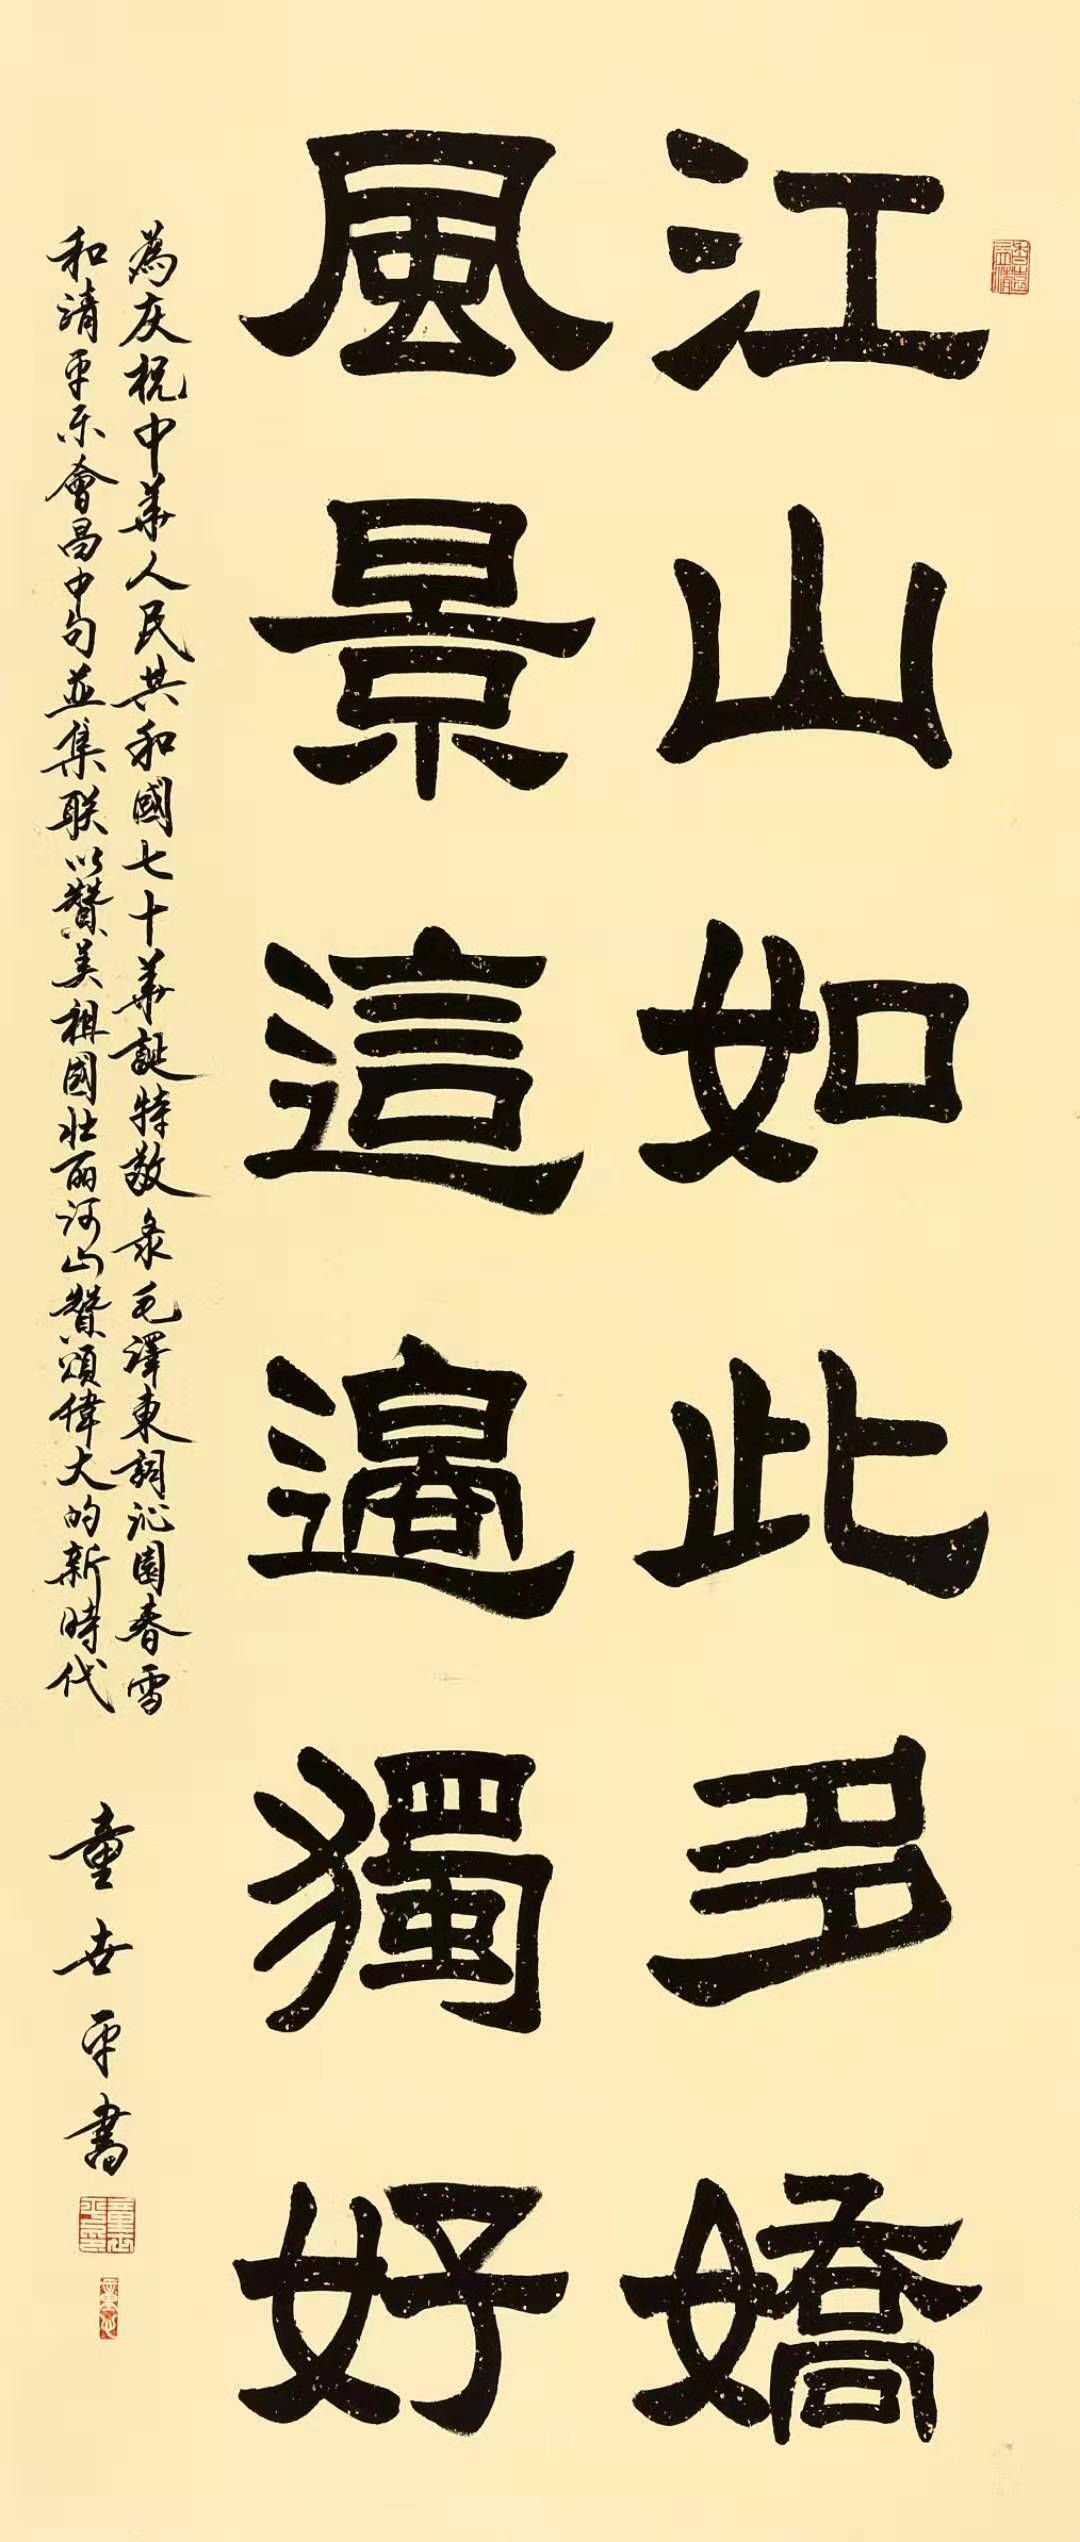 江山如此多嬌
風景這邊獨好
為庆祝中華人民共和國七十華誕特敬录毛澤東詞沁園春雪
和清平乐會昌中句並集联以贊美祖國壮丽河山贊頌偉大的新時代
童世平書